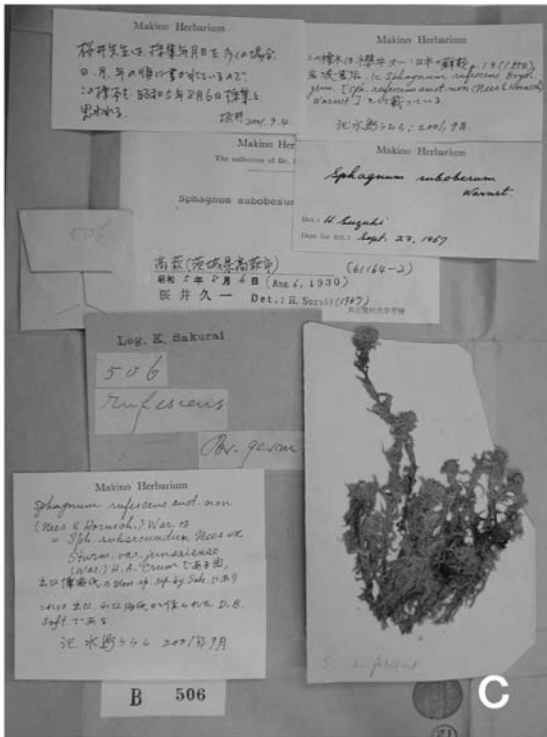 Makino Herbarium
桜井先生は、採集年月日を書く場合、
日.月.年の順に書かれているので、
この標本も昭和5年8月6日採集と
思われる.
坂井 2001.9.4
Makino Herbarium
この標本は桜井久一:日本の蘚類 p.19 (1954),
に Sphagnum rufescens Bryol.
germ. [Sph. rufescens auct. non (Nees & Hornsch.)
Warnst.] として載っている.
記. 水島うらら; 2001. 9月.
Makino Her
The collection of Dr.
Sphagnum subobesum
Makino Herbarium
Sphagnum subobesum
Warnst.
Det.: H. Suzuki
Date for det.: Sept. 23, 1967
506
高萩(茨城県高萩市)
(61164-2)
昭和5年8月6日(Aug. 6, 1930)
桜井久一 Det.: H. Suzuki (1967)
Log. K. Sakurai
506
rufescens
Br. germ
Makino Herbarium
Sphagnum rufescens auct. non
(Nees & Hornsch.) War. は
= Sph. subsecundum Nees ex
Sturm. var. junsaiense
(War.) H.A. Crum である由,
出口博則氏の
これは出口 氏が作られた D.B.
Soft. である.
記. 水島うらら 2001年9月
B 506
S. rufescens
C